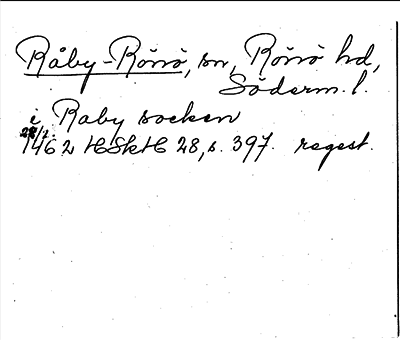 Råby-Rönö, sn, Rönö hd,
Söderm. l.
i Raby socken
28/2
1462 HSkH 28, s. 397. regest.